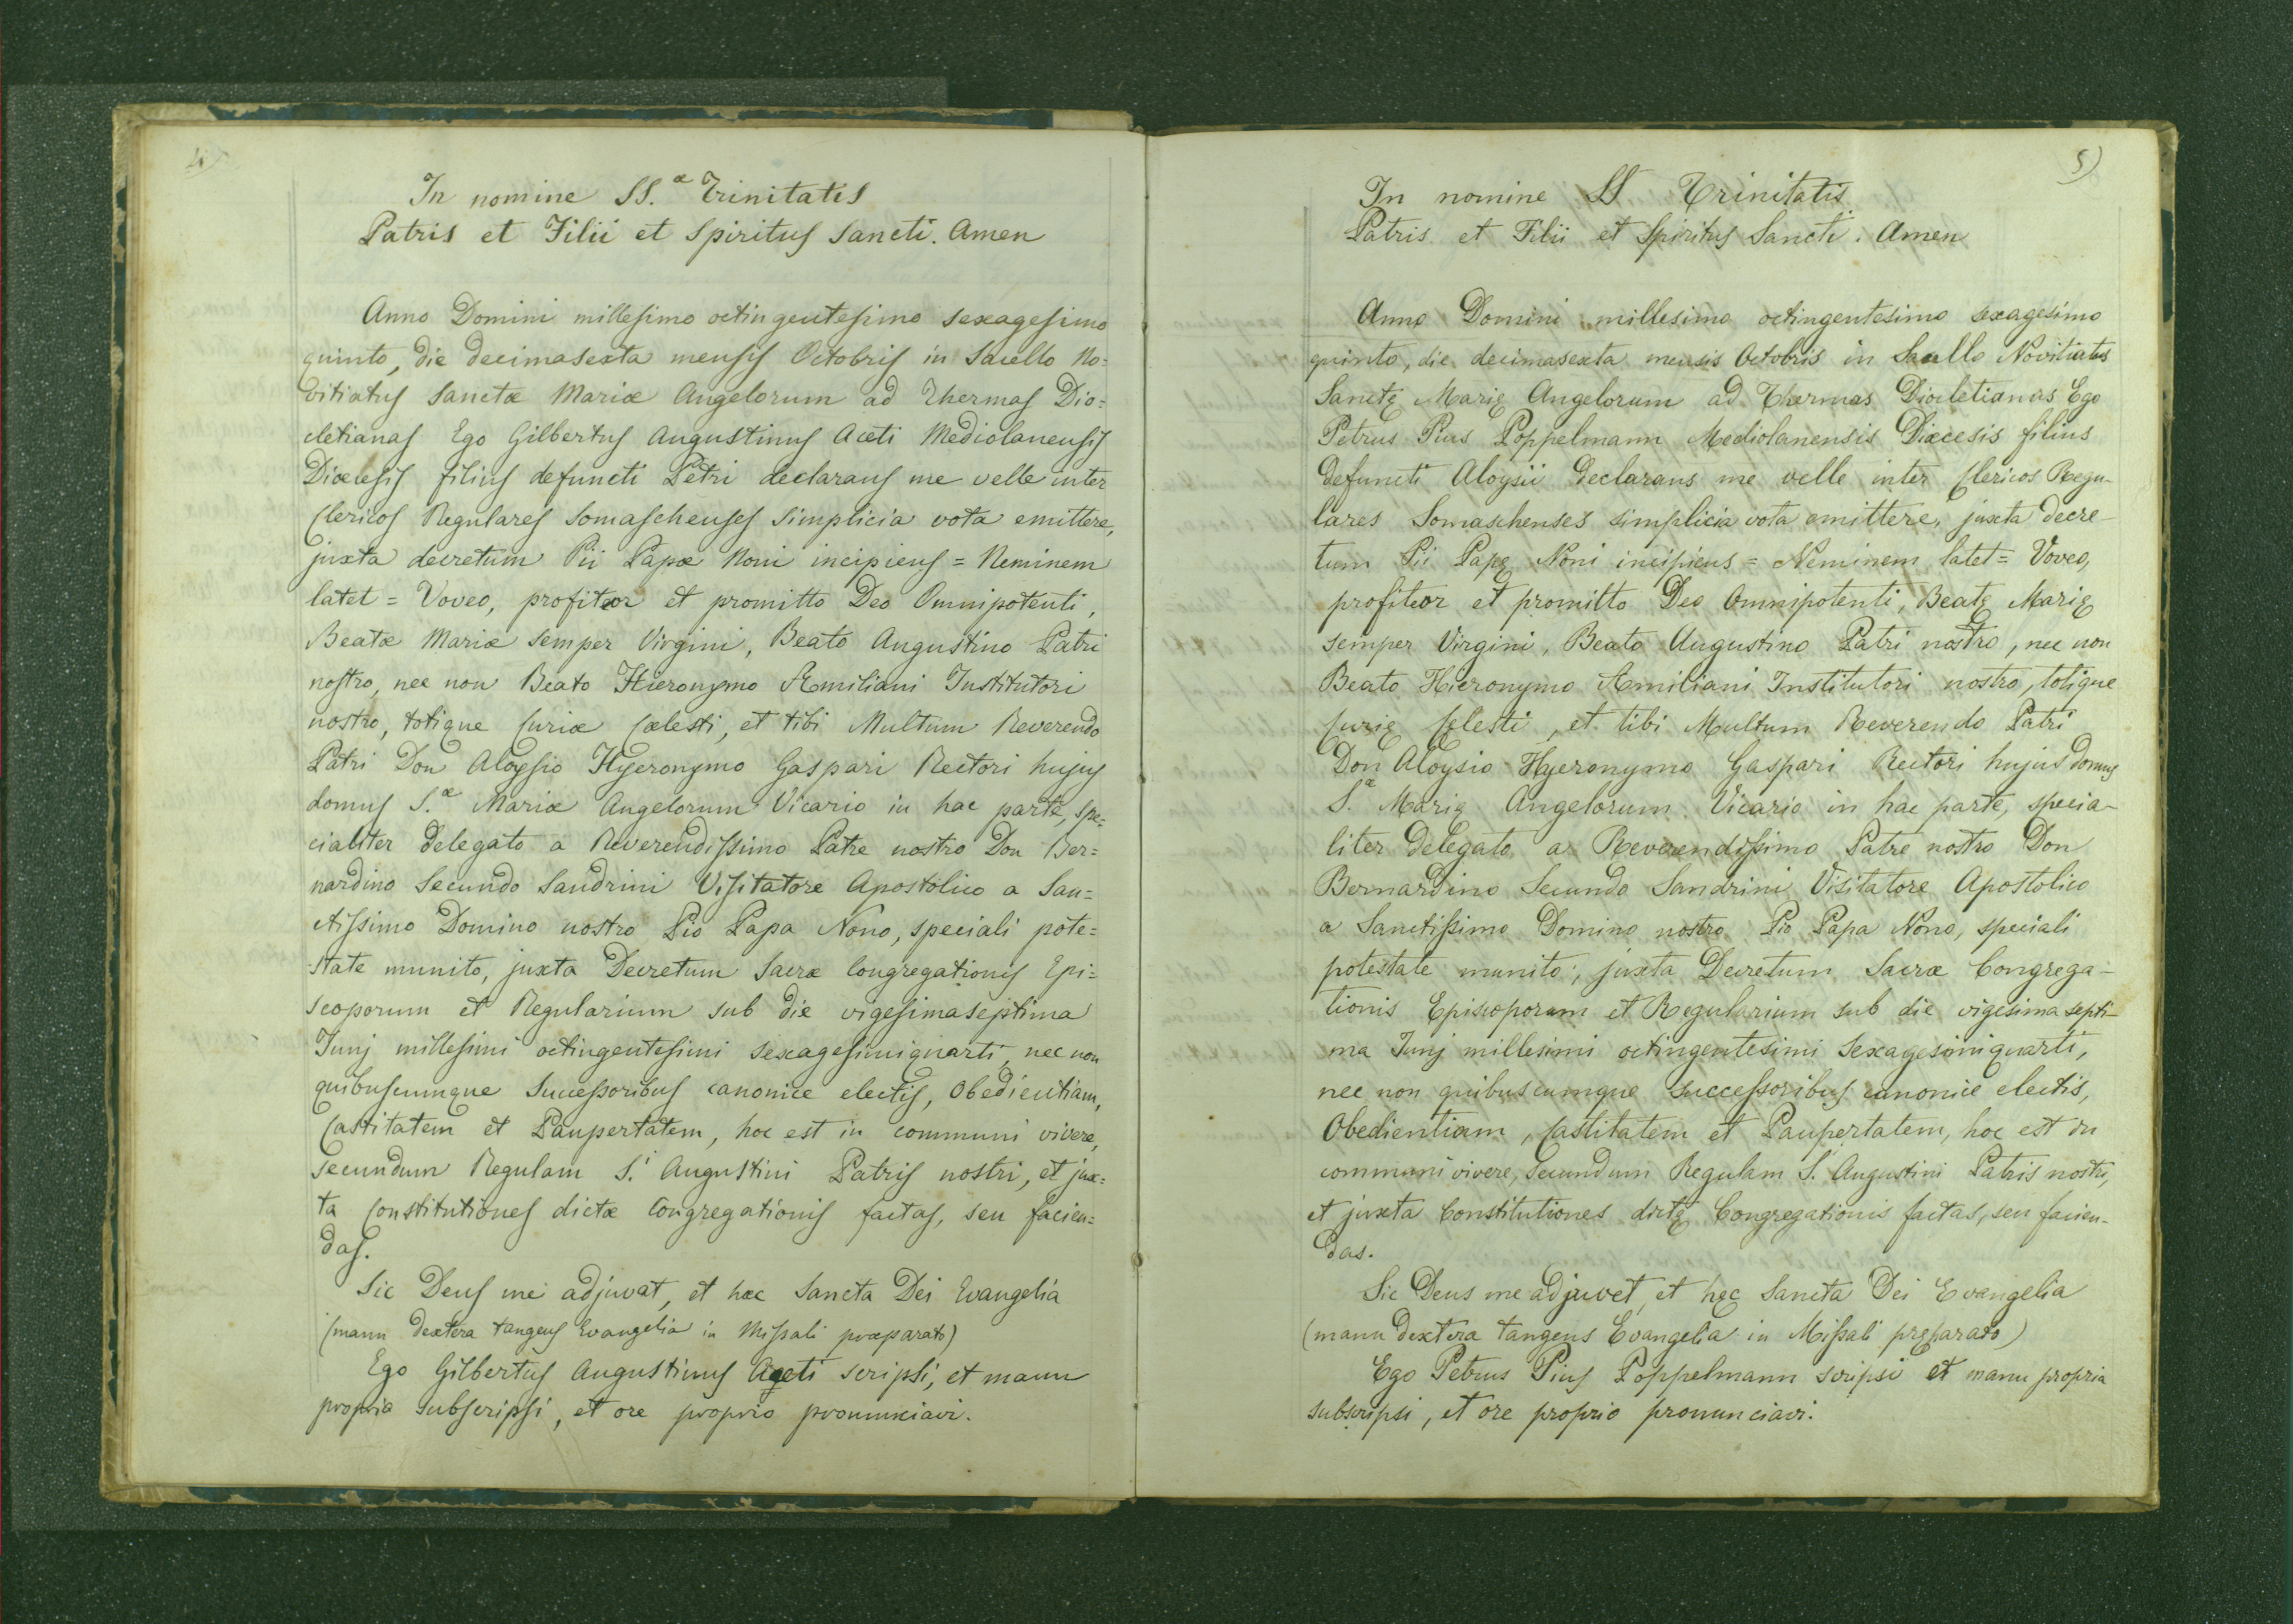 4)
In nomine SS.æ Trinitatis
Patris et Filii et Spiritus Sancti. Amen
Anno Domini millesimo octingentesimo sexagesimo
quinto, die decimasexta mensis Octobris in Sacello No=
vitiatus Sanctæ Mariæ Angelorum ad Thermas Dio=
cletianas Ego Gilbertus Augustinus Aceti Mediolanensis
Diœcesis filius defuncti Petri declarans me velle inter
Clericos Regulares Somaschenses simplicia vota emittere,
juxta decretum Pii Papæ Noni incipiens = Neminem
latet = Voveo, profiteor et promitto Deo Omnipotenti,
Beatæ Mariæ semper Virgini, Beato Augustino Patri
nostro, nec non Beato Hieronymo Æmiliani Institutori
nostro, totique Curiæ Cælesti, et tibi Multum Reverendo
Patri Don Aloysio Hyeronymo Gaspari Rectori hujus
domus S.æ Mariæ Angelorum Vicario in hac parte, spe=
cialiter delegato a Reverendissimo Patre nostro Don Ber=
nardino Secundo Sandrini Visitatore Apostolico a San=
ctissimo Domino nostro Pio Papa Nono, speciali pote=
state munito, juxta Decretum Sacræ Congregationis Epi=
scoporum et Regularium sub die vigesimaseptima
Junj millesimi octingentesimi sexagesimiquarti, nec non
quibuscumque Successoribus canonice electis, Obedientiam,
Castitatem et Paupertatem, hoc est in communi vivere,
secundum Regulam S.i Augustini Patris nostri, et jux=
ta Constitutiones dictæ Congregationis factas, seu facien=
das.
Sic Deus me adjuvat, et hæc Sancta Dei Evangelia
(manu dextera tangens Evangelia in Missali præparato)
Ego Gilbertus Augustinus Aceti scripsi, et manu
propria subscripsi, et ore proprio pronunciavi.
5)
In nomine SS Trinitatis
Patris et Filii et Spiritus Sancti. Amen
Anno Domini millesimo octingentesimo sexagesimo
quinto, die decimasexta mensis Octobris in Sacello Novitiatus
Sanctę Marię Angelorum ad Thermas Diocletianas Ego
Petrus Pius Poppelmann Mediolanensis Diæcesis filius
defuncti Aloysii declarans me velle inter Clericos Regu-
lares Somaschenses simplicia vota emittere, juxta decre-
tum Pii Papę Noni incipiens = Neminem latet = Voveo,
profiteor et promitto Deo Omnipotenti, Beatę Marię
semper Virgini, Beato Augustino Patri nostro, nec non
Beato Hieronymo Æmiliani Institutori nostro, totique
Curię Cęlesti, et tibi Multum Reverendo Patri
Don Aloysio Hyeronymo Gaspari Rectori hujus domus
S.æ Marię Angelorum Vicario in hac parte, specia-
liter delegato a Reverendissimo Patre nostro Don
Bernardino Secundo Sandrini Visitatore Apostolico
a Sanctissimo Domino nostro Pio Papa Nono, speciali
potestate munito, juxta Decretum Sacræ Congrega-
tionis Episcoporum et Regularium sub die vigesima septi-
ma Junj millesimi octingentesimi sexagesimiquarti,
nec non quibuscumque successoribus canonice electis,
Obedientiam, Castitatem et Paupertatem, hoc est in
communi vivere, secundum Regulam S. Augustini Patris nostri,
et juxta Constitutiones dictę Congregationis factas, seu facien-
das.
Sic Deus me adjuvet, et hęc Sancta Dei Evangelia
(manu dextera tangens Evangelia in Missali pręparato)
Ego Petrus Pius Poppelmann scripsi et manu propria
subscripsi, et ore proprio pronunciavi.